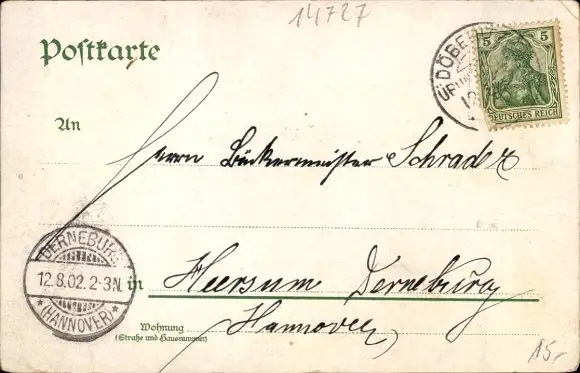 14727
Postkarte
DÖBE
5 5
DEUTSCHES REICH
An
Herrn Bäckermeister Schrader
DERNEBURG
12.8.02. 2-3N.
* (HANNOVER) *
in Heersum Derneburg
Hannover
Wohnung
(Straße und Hausnummer)
15,-